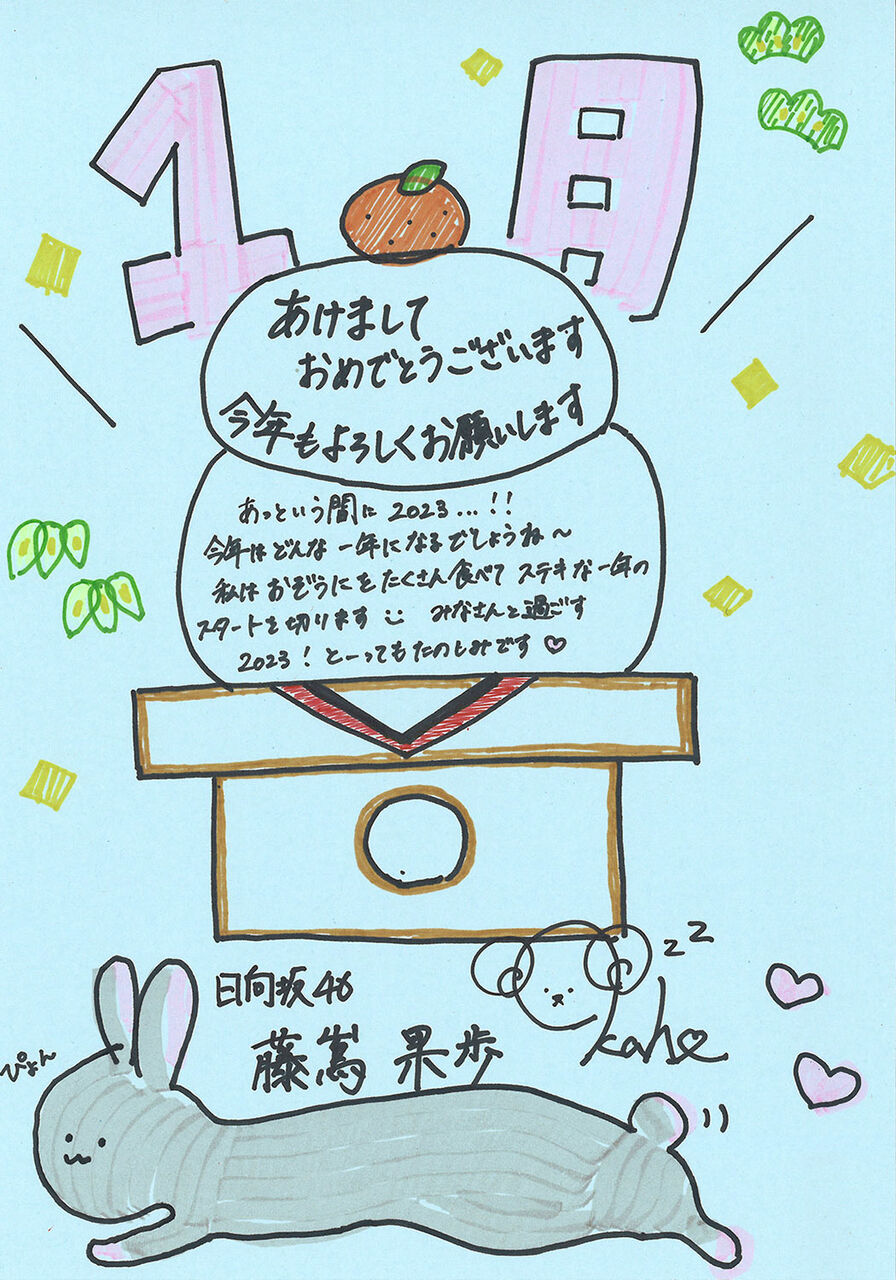 1月
あけまして
おめでとうございます
今年もよろしくお願いします
あっという間に 2023...!!
今年はどんな一年になるでしょうね〜
私はおぞうにをたくさん食べてステキな一年の
スタートを切ります みなさんと過ごす
2023！とーってもたのしみです♡
zz
日向坂46
kaho
藤嶌 果歩
ぴょん